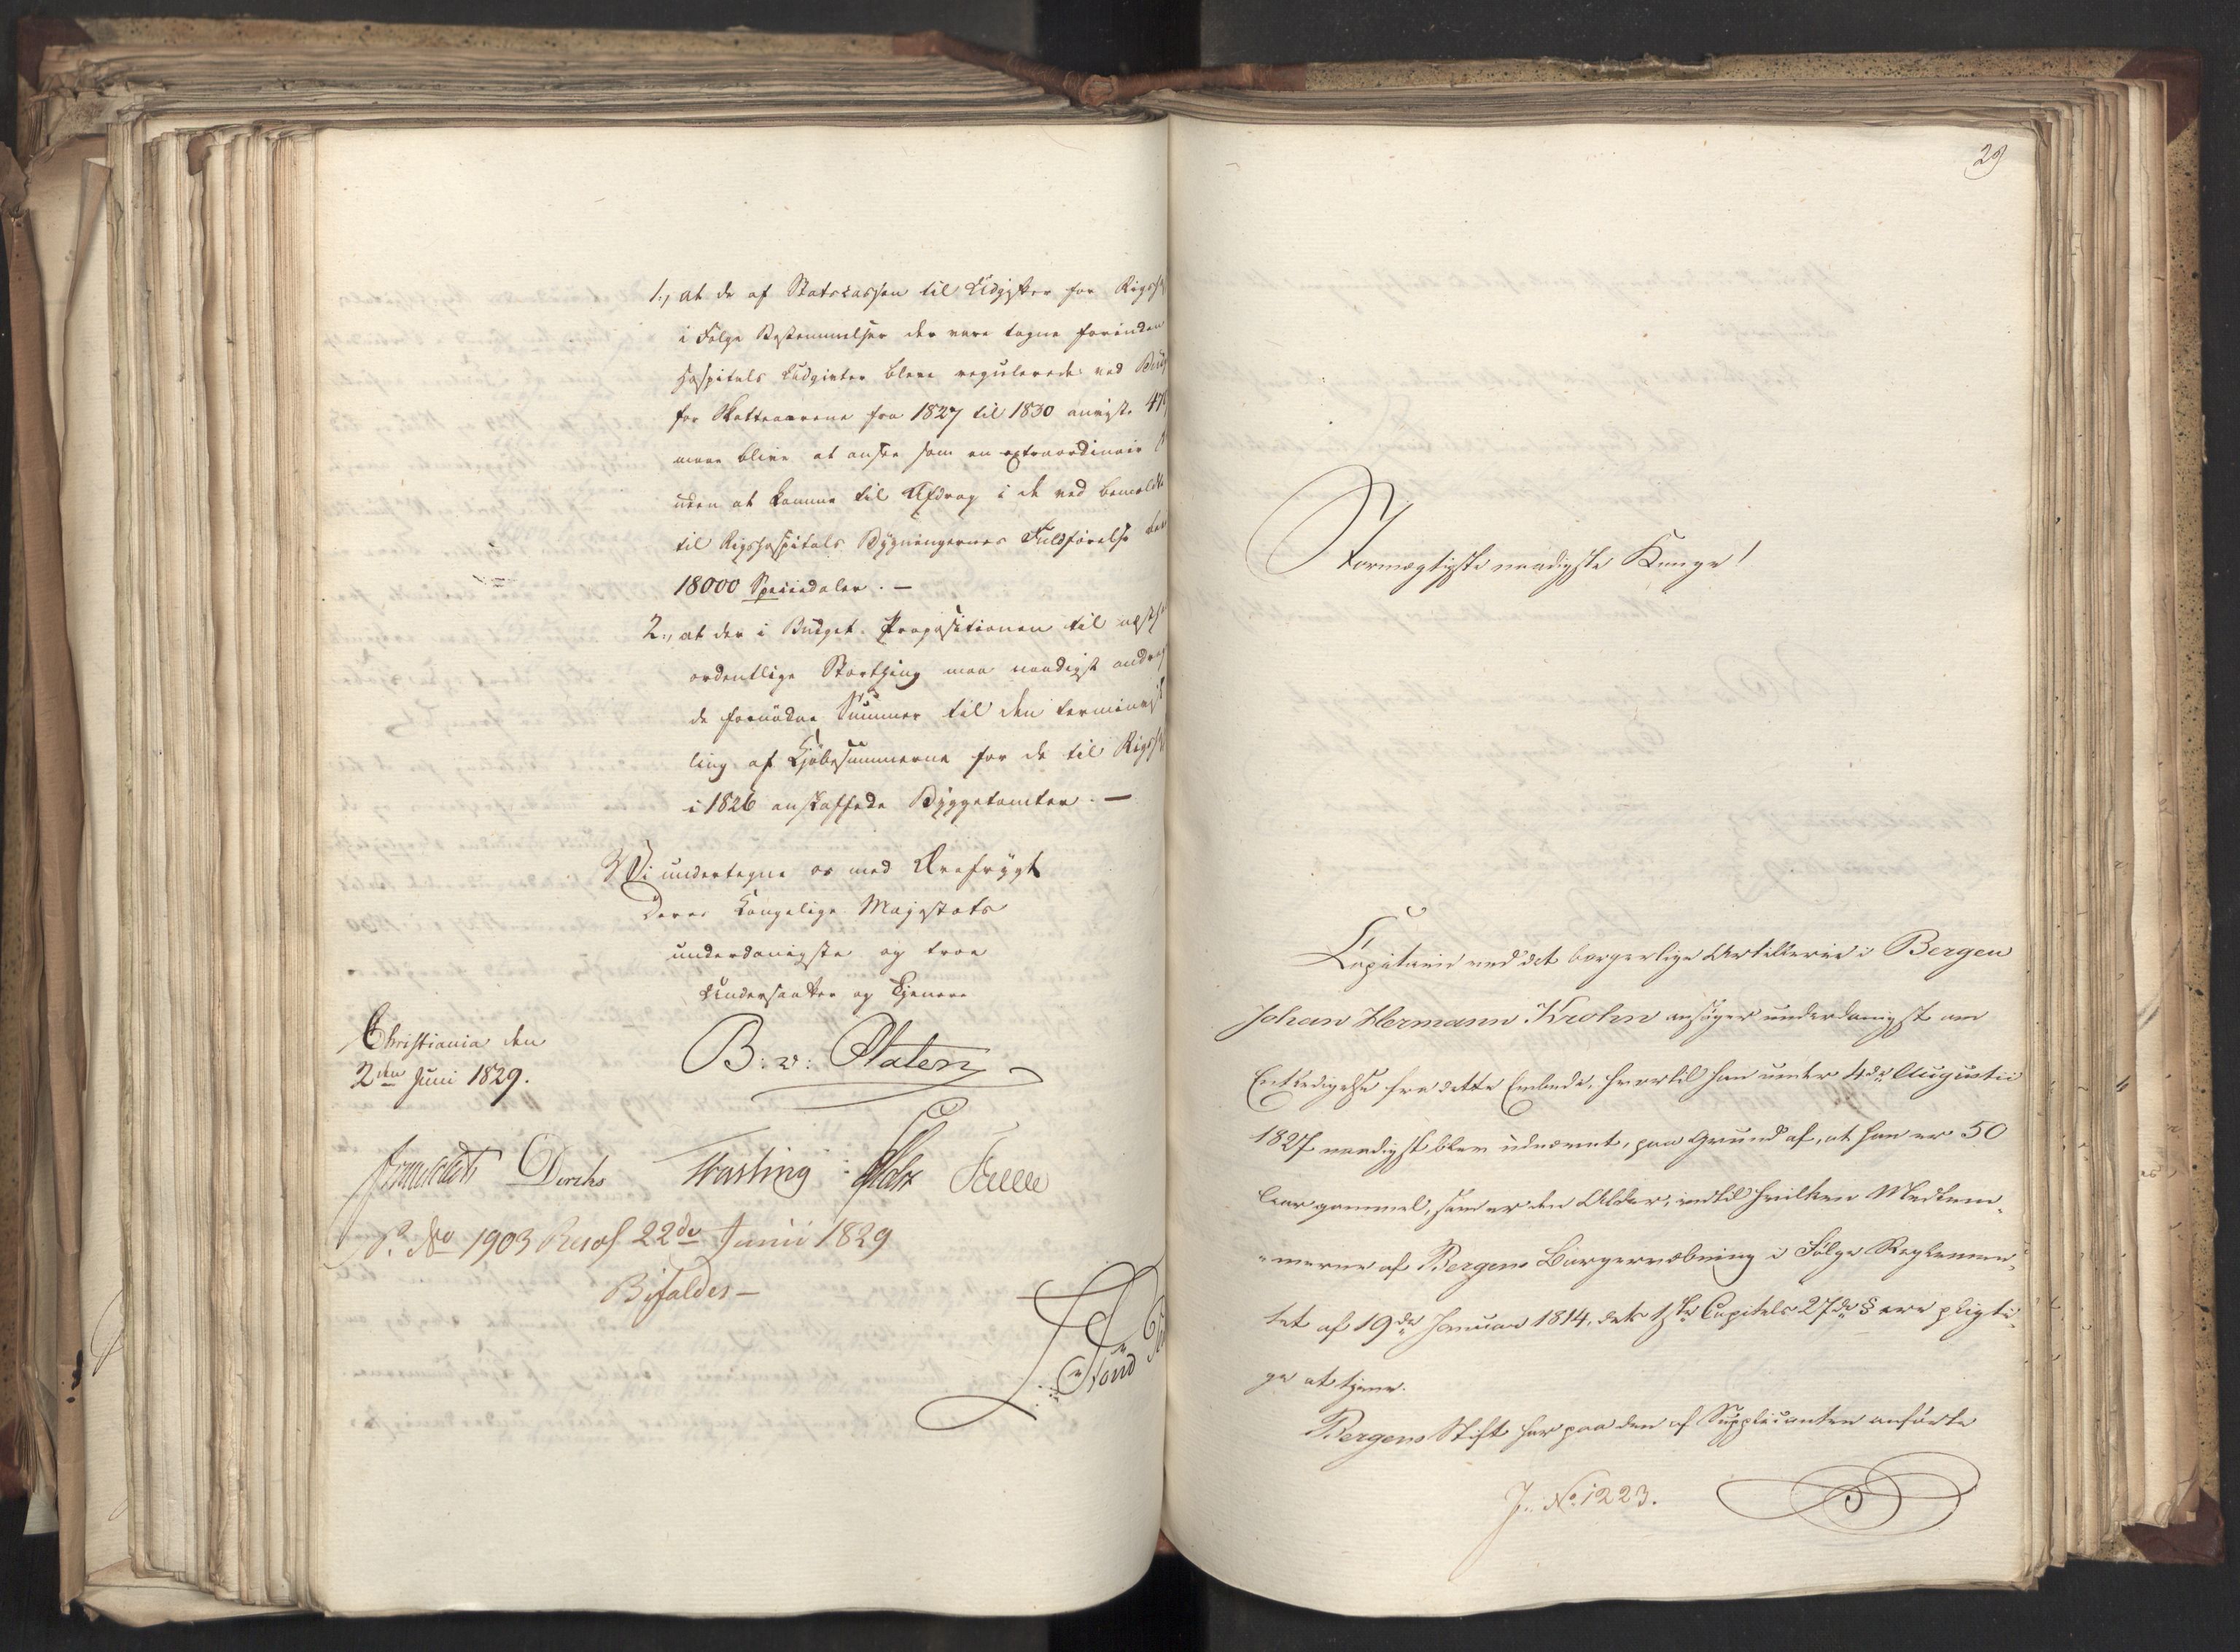 1., at de af Statskassen til Udgifter for Rigsh
i Følge Bestemmelser der vare tagne forinden
Hospitalets Udgivter bleve regulerede ved Bud
for Skatteaarene fra 1827 til 1830 anviste 47
maae blive at ansee som en extraordinair
uden at komme til Afdrag i de ved bemeldte
til Rigshospitalets Bygningernes Fuldførelse be
18000 Speciedaler. —
2., at der i Budget-Propositionen til næste
ordentlige Storthing maa naadigst andrag
de fornødne Summer til den terminvi
ling af Kjøbesummerne for de til Rigsh
i 1826 anskaffede Byggetomter. —
Vi undertegne os med Ærefrygt
Deres Kongelige Majestæts
underdanigste og troe
Undersaatter og Tjenere
Christiania den
2den Juni 1829.
B: v: Platen
Diriks Fasting Holst
No 1903 Resol 22de Junii 1829
Bifaldes —
29
Stormægtigste naadigste Konge!
Capitain ved det borgerlige Artillerie i Bergen
Johan Hermann Krohn ansøger underdanigst om
Entledigelse fra dette Embede, hvortil han under 4de Augustii
1827 naadigst blev udnævnt, paa Grund af, at han er 50
Aar gammel, som er den Alder, indtil hvilken Medlem-
"merne af Bergens Borgervæbning i Følge Reglemen-
tet af 19de Januar 1814, dets 1ste Capitels 27de § ere pligti-
ge at tjene.
Bergens Stift har paa den af Supplicanten anførte
J. No. 1223.